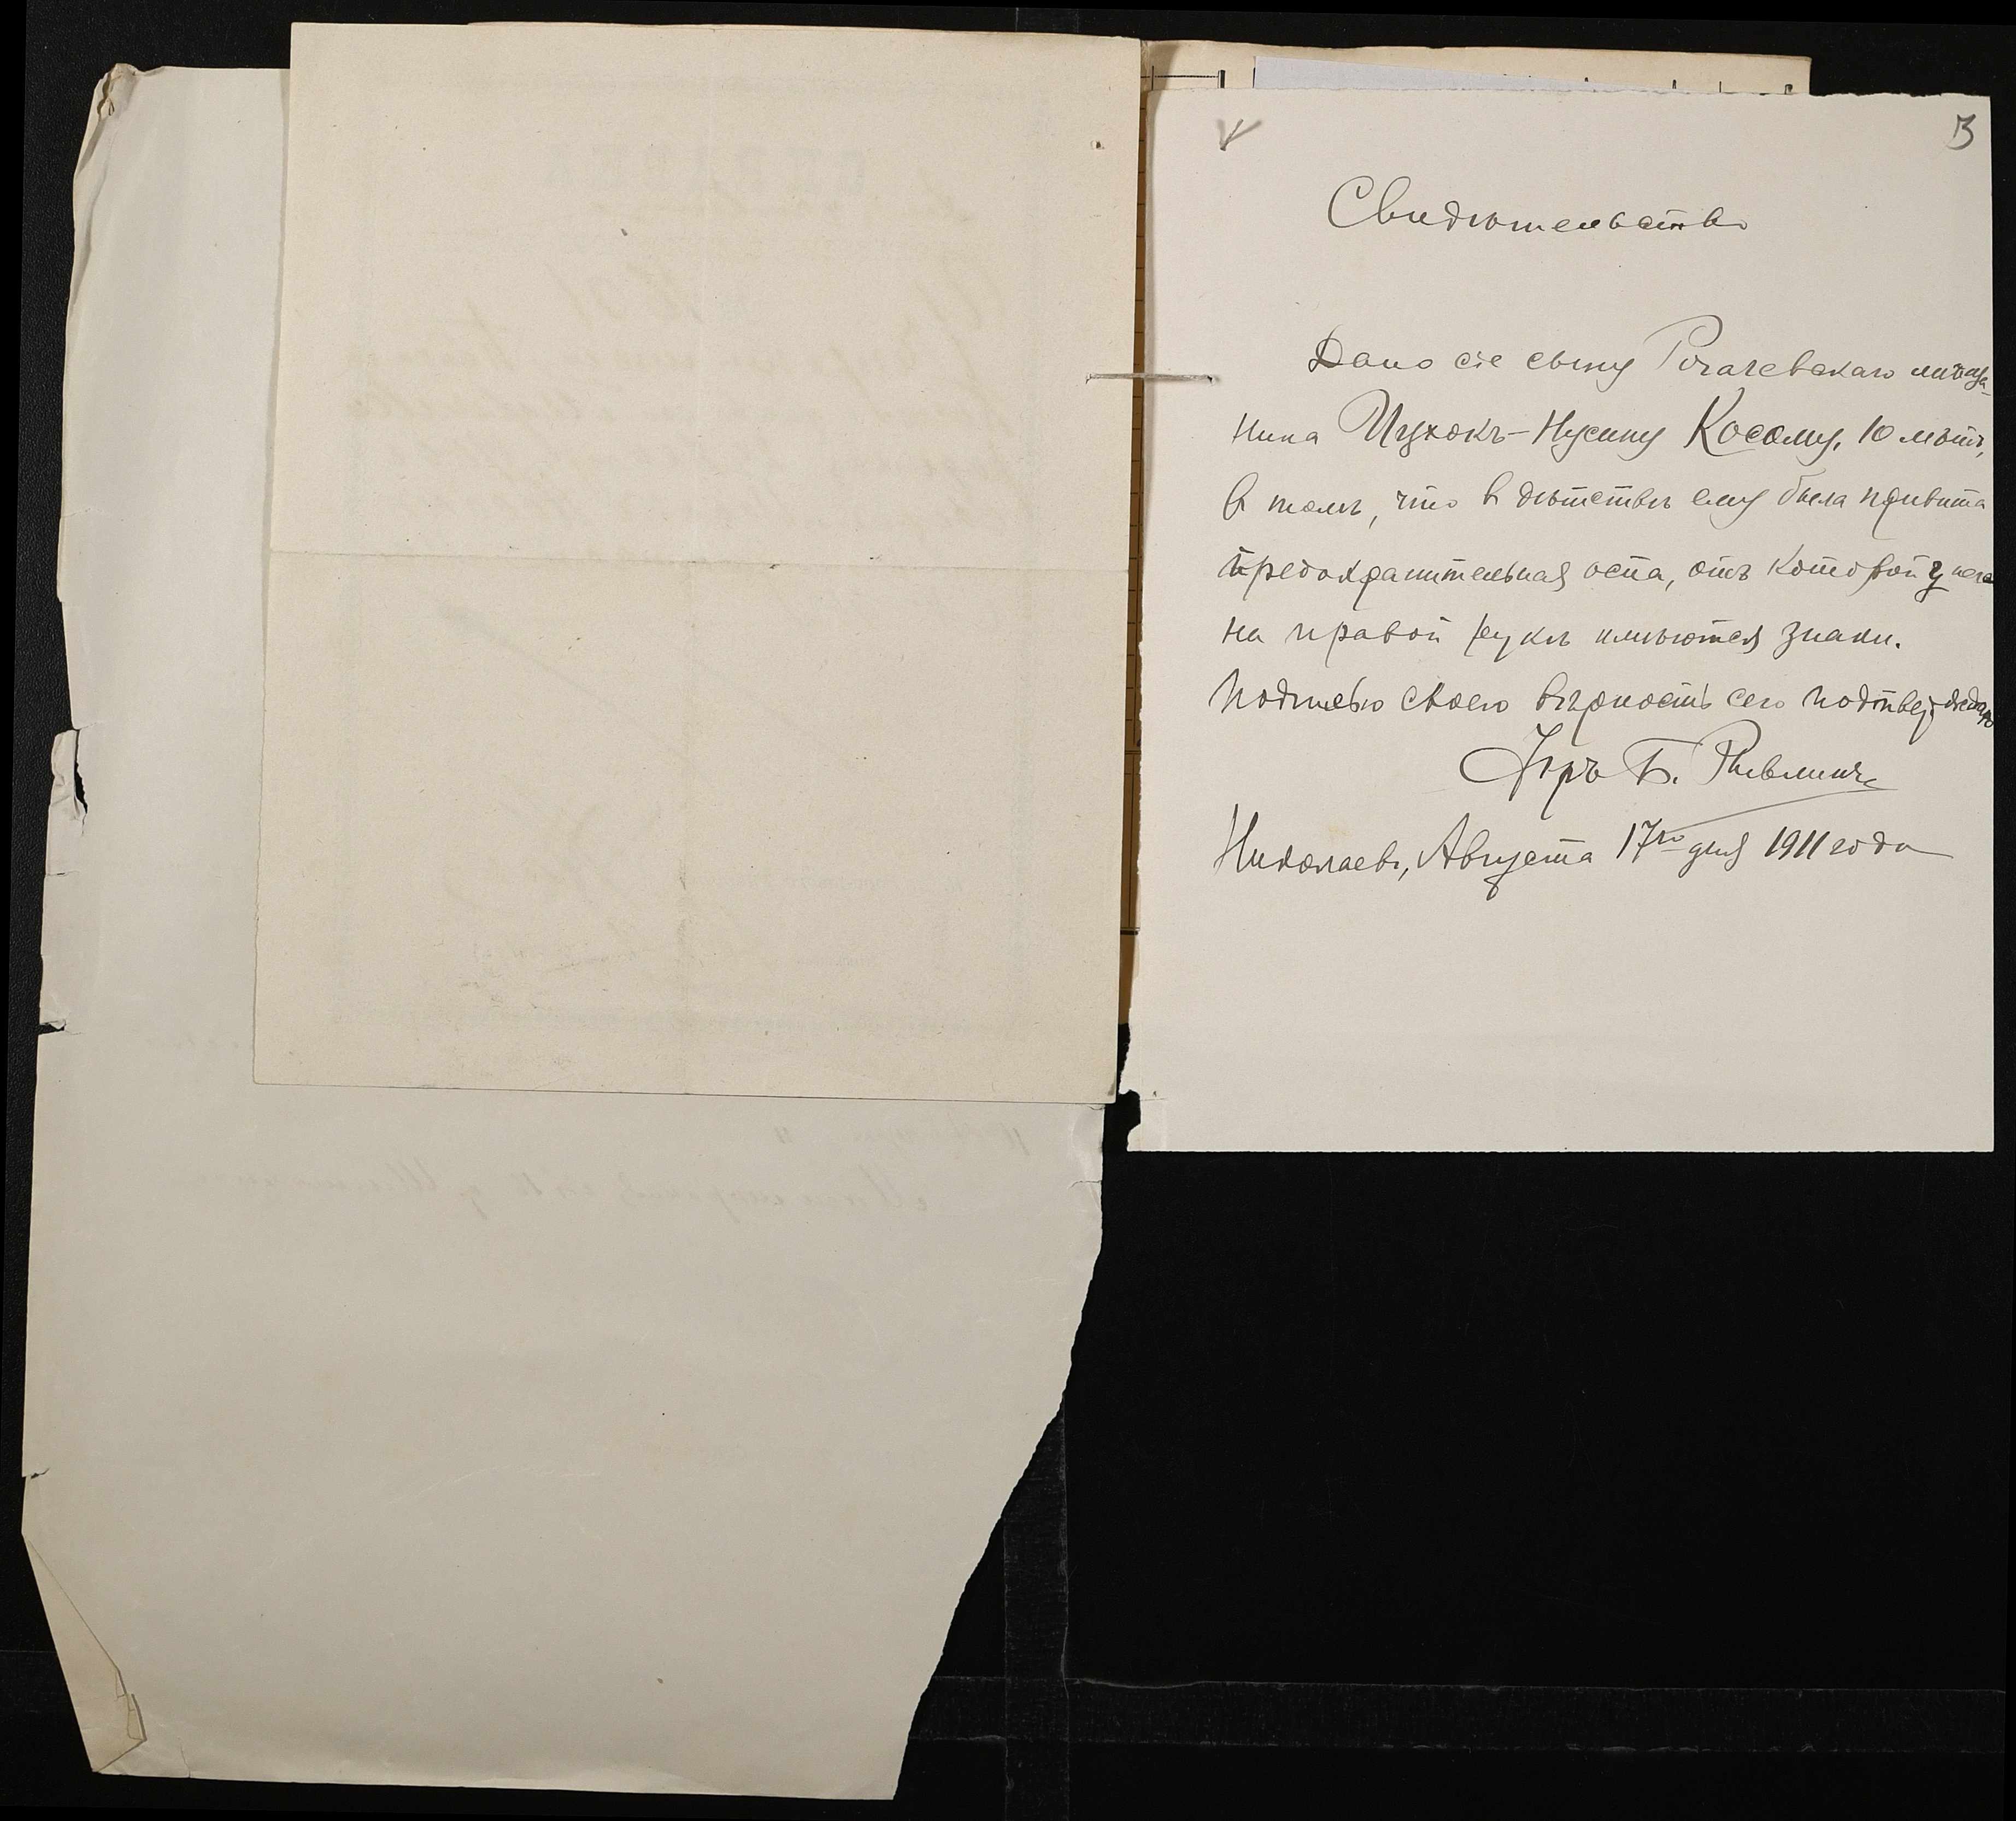 3
Свидѣтельство
Дано сіе сыну Рогачевскаго мѣща-
нина Ицхокъ-Нусину Косому, 10 лѣтъ,
в томъ, что в дѣтствѣ ему была привита
предохранительная оспа, отъ которой у него
на правой рукѣ имѣются знаки.
Подписью своею вѣрность сего подтверждаю
Б. Ривлинъ
Николаевъ, Августа 17го дня 1911 года